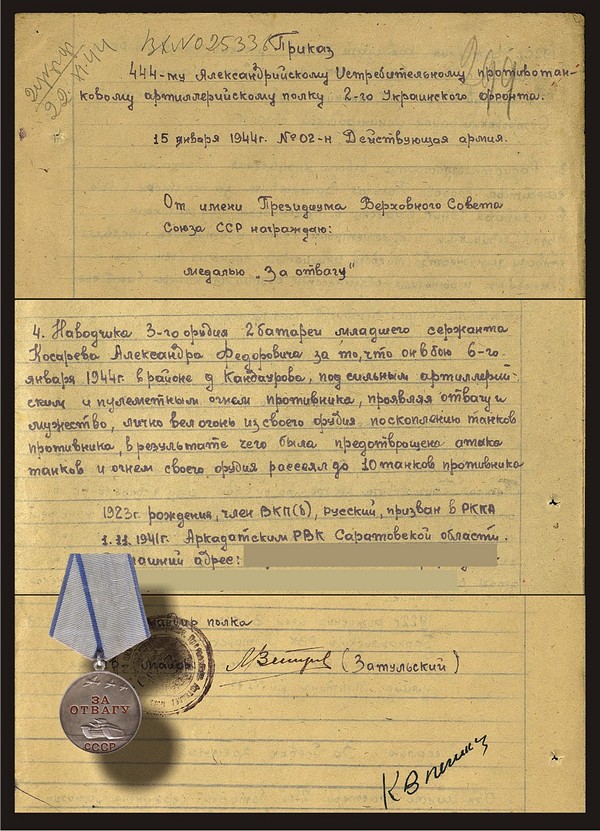 ВХ№025336
22.XI.44
Приказ
444-му Александрийскому Истребительному противотан-
ковому артиллерийскому полку 2-го Украинского фронта.
15 января 1944г. №02-н Действующая армия.
От имени Президиума Верховного Совета
Союза ССР награждаю:
медалью „За отвагу"
4. Наводчика 3-го орудия 2 батареи младшего сержанта
Косарева Александра Федоровича за то, что он в бою 6-го
января 1944г. в районе д Кандаурова, под сильным артиллерий-
ским и пулеметным огнем противника, проявляя отвагу и
мужество, лично вел огонь из своего орудия поскоплению танков
противника, в результате чего была предотврощена атака
танков и огнем своего орудия рассеял до 10 танков противника
1923г. рождения, член ВКП(б), русский, призван в РККА
1.11.1941г. Аркадатским РВК Саратовской области.
машний адрес:
мандир полка
майор (Затульский)
ЗА
ОТВАГУ
СССР